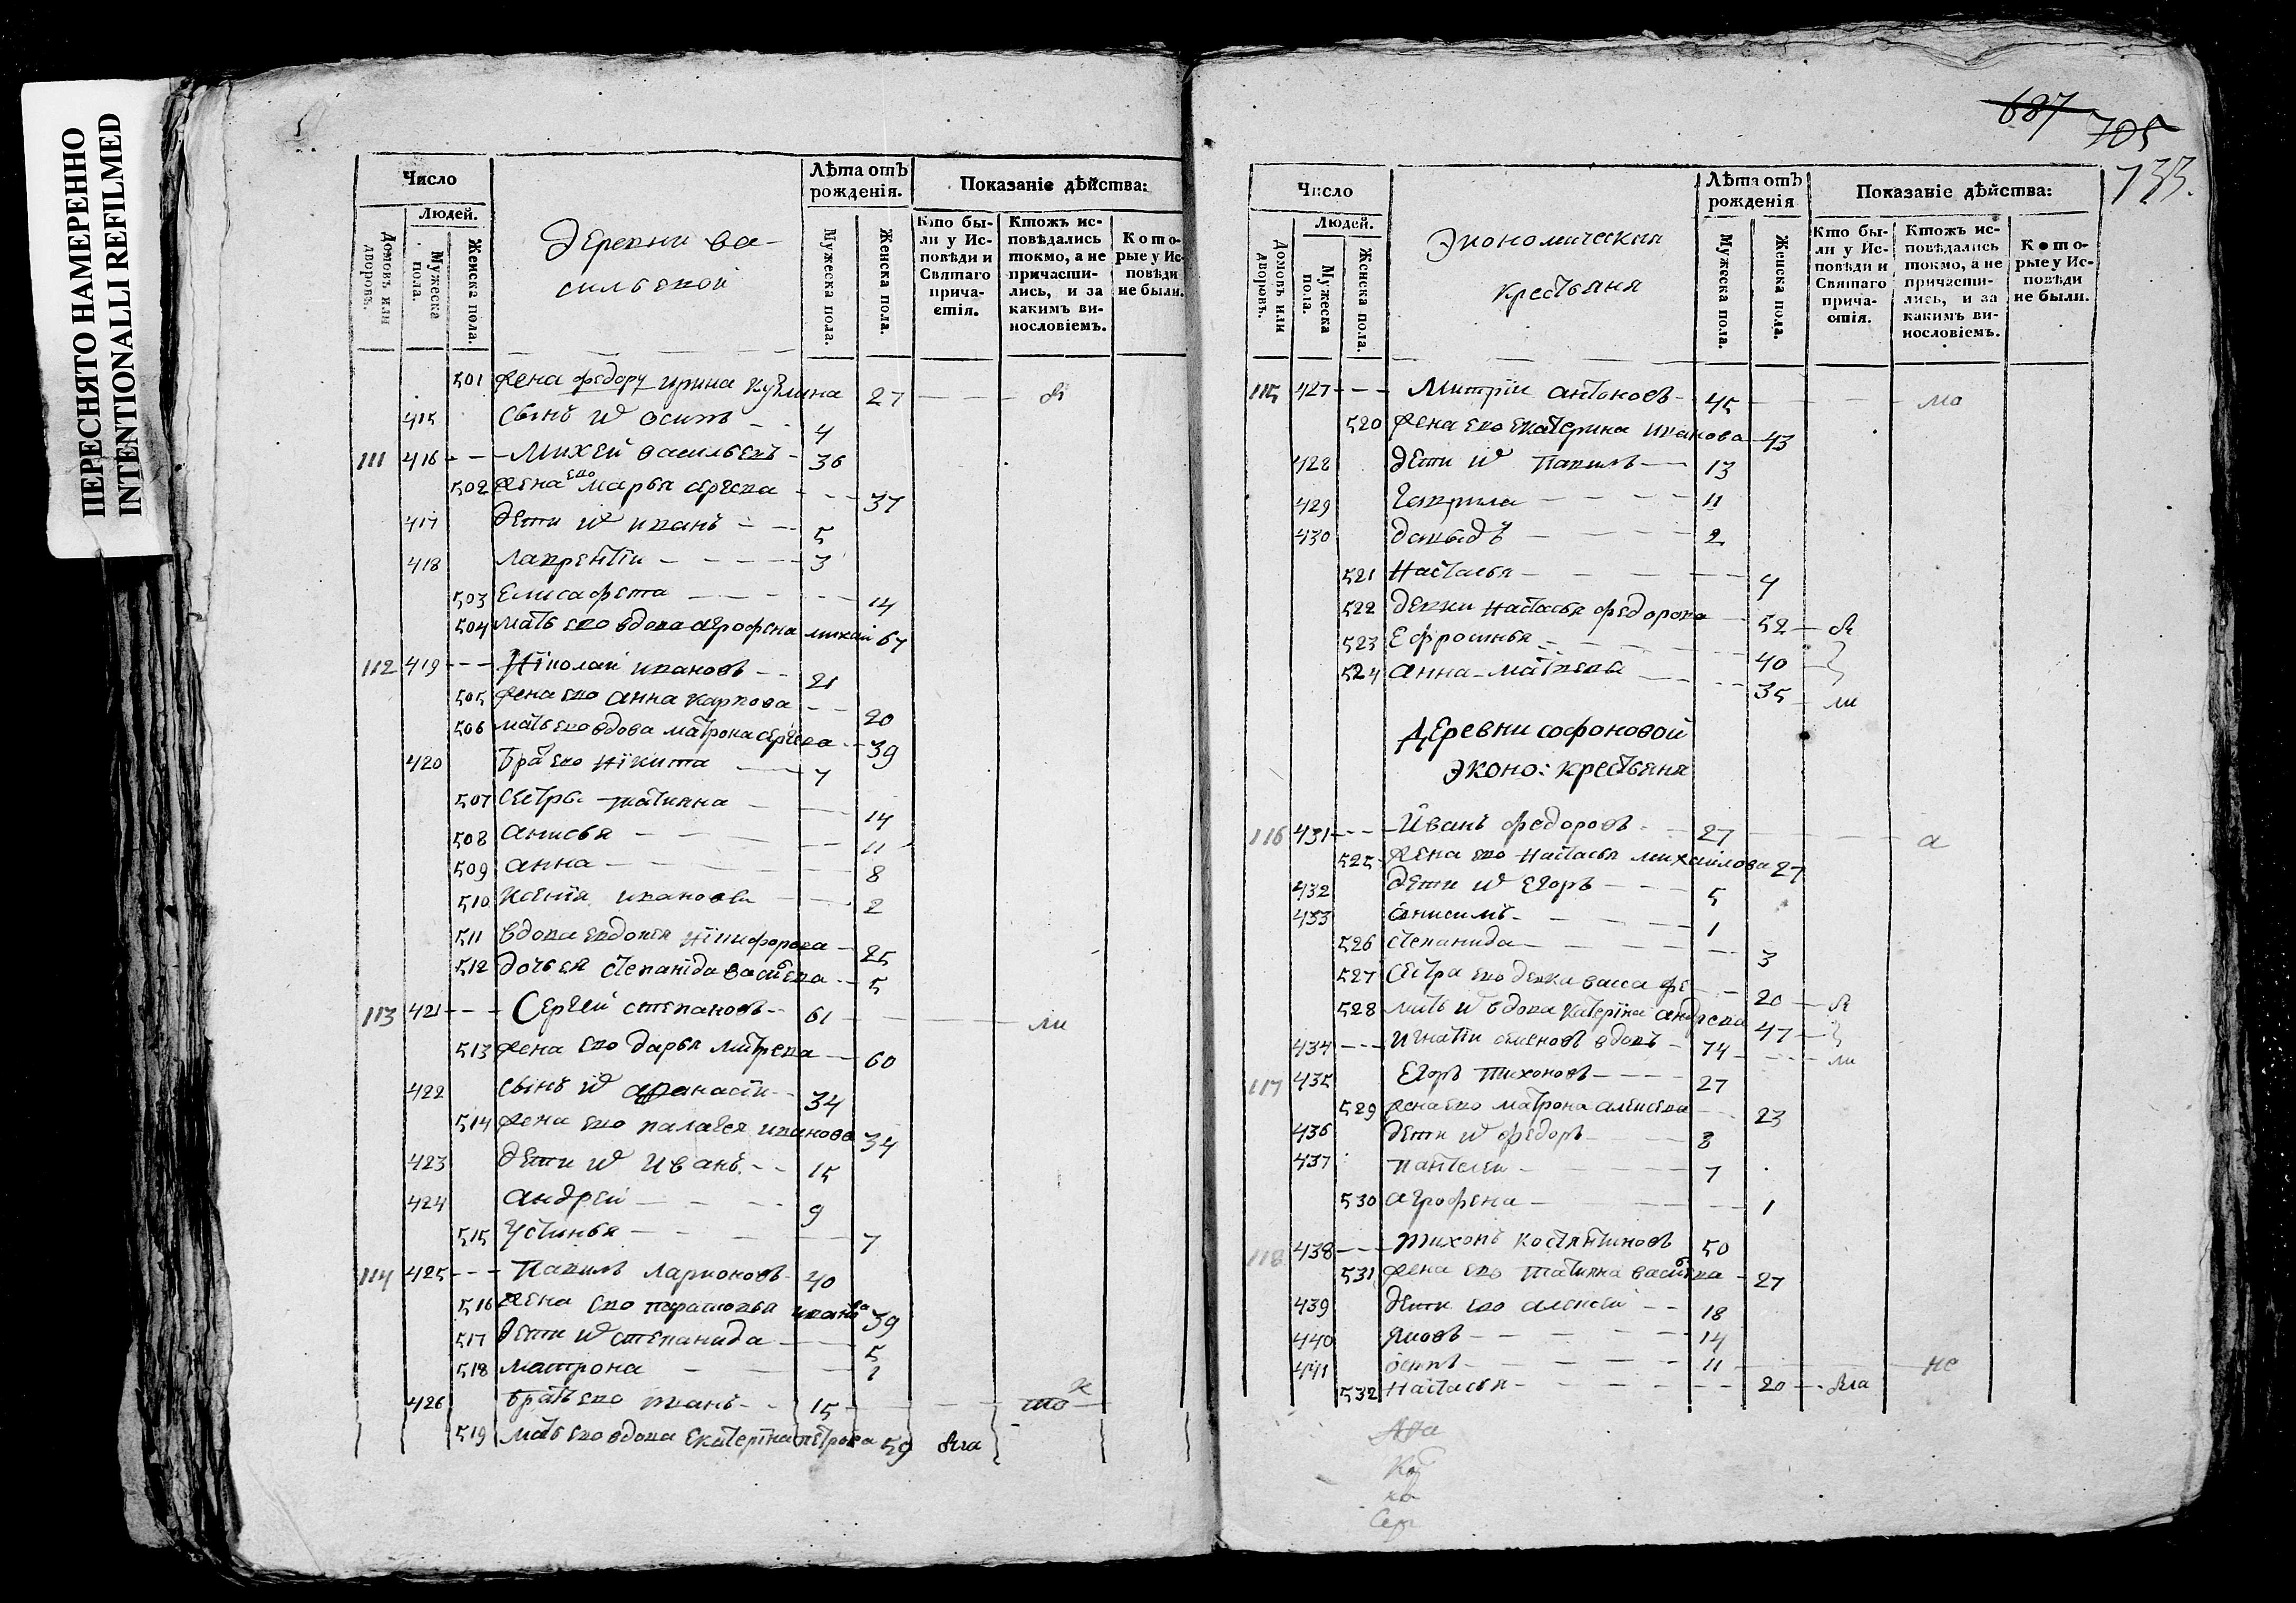 ПЕРЕСНЯТО НАМЕРЕННО
INTENTIONALLI REFILMED
Число
Людей.
Домовъ или дворовъ.
Мужеска пола.
Женска пола.
Деревни ва-
сильевой
Лѣта отъ рожденія.
Мужеска пола.
Женска пола.
Показаніе дѣйства:
Кто бы-
ли у Ис-
повѣди и
Святаго
прича-
стія.
Ктожъ ис-
повѣдались
токмо, а не
причасти-
лись, и за
какимъ ви-
нословіемъ.
Кото-
рые у Ис-
повѣди
не были.
501 жена федору ирина 27
415 Сынъ осипъ 4
111 416 Михей васильевъ 36
502 жена ево марья сергева 37
417 дети иванъ 5
418 лаврентіи 3
503 Елисафета 14
504 мать ево вдова агрофена 67
112 419 Ніколай ивановъ 21
505 жена ево анна карпова 20
506 мать ево вдова матрона 39
420 братъ ево нікита 7
507 сестры татиана 14
508 анисья 11
509 анна 8
510 ксенія ивановы 2
511 вдова евдокея нікифорова 25
512 дочь ея степаніда 5
113 421 Сергей степановъ 61 ли
513 жена ево дарья 60
422 сынъ афанасіи 34
514 жена ево палагея иванова 34
423 дети иванъ 15
424 андрей 9
515 устинья 7
114 425 Павилъ ларионовъ 40
516 жена ево парасковья иванова 39
517 дети степанида 5
518 матрона 1
426 братъ ево иванъ 15
519 мать ево вдова екатеріна петрова 59
687
705
733.
Число
Людей.
Домовъ или дворовъ.
Мужеска пола.
Женска пола.
Экономическия
крестьяня
Лѣта отъ рожденія
Мужеска пола.
Женска пола.
Показаніе дѣйства:
Кто бы-
ли у Ис-
повѣди и
Святаго
прича-
стія.
Ктожъ ис-
повѣдались
токмо, а не
причасти-
лись, и за
какимъ ви-
нословіемъ.
Кото-
рые у Ис-
повѣди
не были.
115 427 Митріи антоновъ 45 ма
520 жена ево екатерина иванова 43
428 дети павилъ 13
429 гаврила 11
430 давыдъ 2
521 настасья 4
522 девки настасья федорова 52
523 ефросинья 40
524 анна матвева 35 ли
деревни софоновой
эконо: крестьяня
116 431 Иванъ федоровъ 27 а
525 жена ево настасья михаилова 27
432 дети егоръ 5
433 анисимъ 1
526 степанида 3
527 сестра ево девка васса фе 20
528 мать вдова катеріна андреева 47
434 игнатіи семеновъ вдовъ 74 ли
117 435 Егоръ тихоновъ 27
529 жена ево матрона алексева 23
436 дети федоръ 8
437 пантелеи 7
530 агрофена 1
118 438 тихонъ костянтиновъ 50
531 жена ево татияна 27
439 дети ево алексей 18
440 яковъ 14
441 осипъ 11 не
532 настасья 20